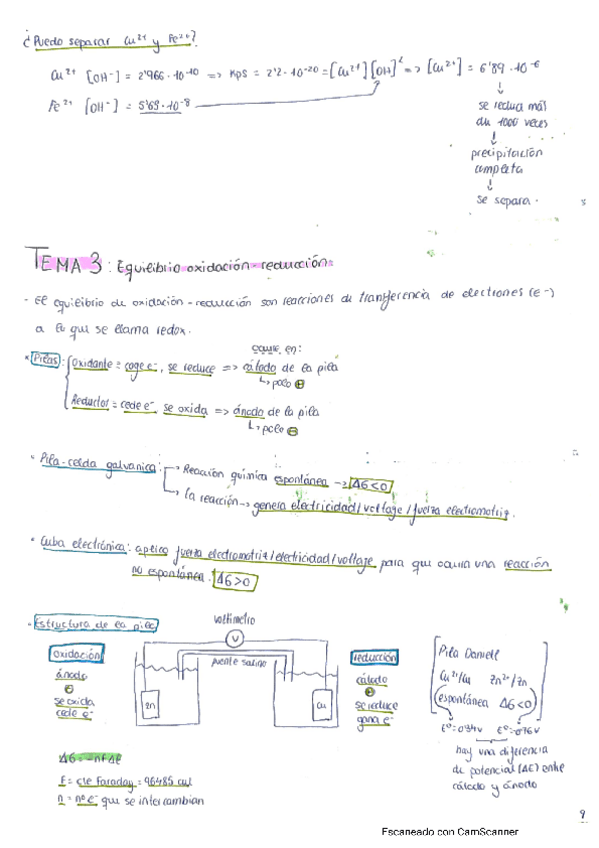 ¿Puedo separar Cu²⁺ y Fe²⁺?
Cu²⁺ [OH⁻] = 2'966·10⁻¹⁰ => Kps = 2'2·10⁻²⁰ = [Cu²⁺][OH]² => [Cu²⁺] = 6'89·10⁻⁶
Fe²⁺ [OH⁻] = 5'69·10⁻⁸
↓
se reduce más
de 1000 veces
↓
precipitación
completa
↓
se separa.
TEMA 3: Equilibrio oxidación-reducción:
- El equilibrio de oxidación-reducción son reacciones de transferencia de electrones (e⁻)
a lo que se llama redox.
ocurre en:
* Pilas: Oxidante = coge e⁻, se reduce => cátodo de la pila
↳ polo ⊕
Reductor = cede e⁻ se oxida => ánodo de la pila
↳ polo ⊖
* Pila-celda galvanica: → Reacción química espontánea → ΔG<0
→ la reacción → genera electricidad/voltaje/fuerza electromotriz.
* Cuba electrónica: aplico fuerza electromotriz/electricidad/voltaje para que ocurra una reacción
no espontánea. ΔG>0
* Estructura de la pila
voltímetro
V
puente salino
oxidación
ánodo
⊖
se oxida
cede e⁻
Zn
Cu
reducción
cátodo
⊕
se reduce
gana e⁻
Pila Daniell
Cu²⁺/Cu Zn²⁺/Zn
espontánea ΔG<0
E⁰=0'34V E⁰=-0'76V
hay una diferencia
de potencial (ΔE) entre
cátodo y ánodo
ΔG = -nFΔE
F = cte Faraday = 96485 cul
n = nº e⁻ que se intercambian
9
Escaneado con CamScanner